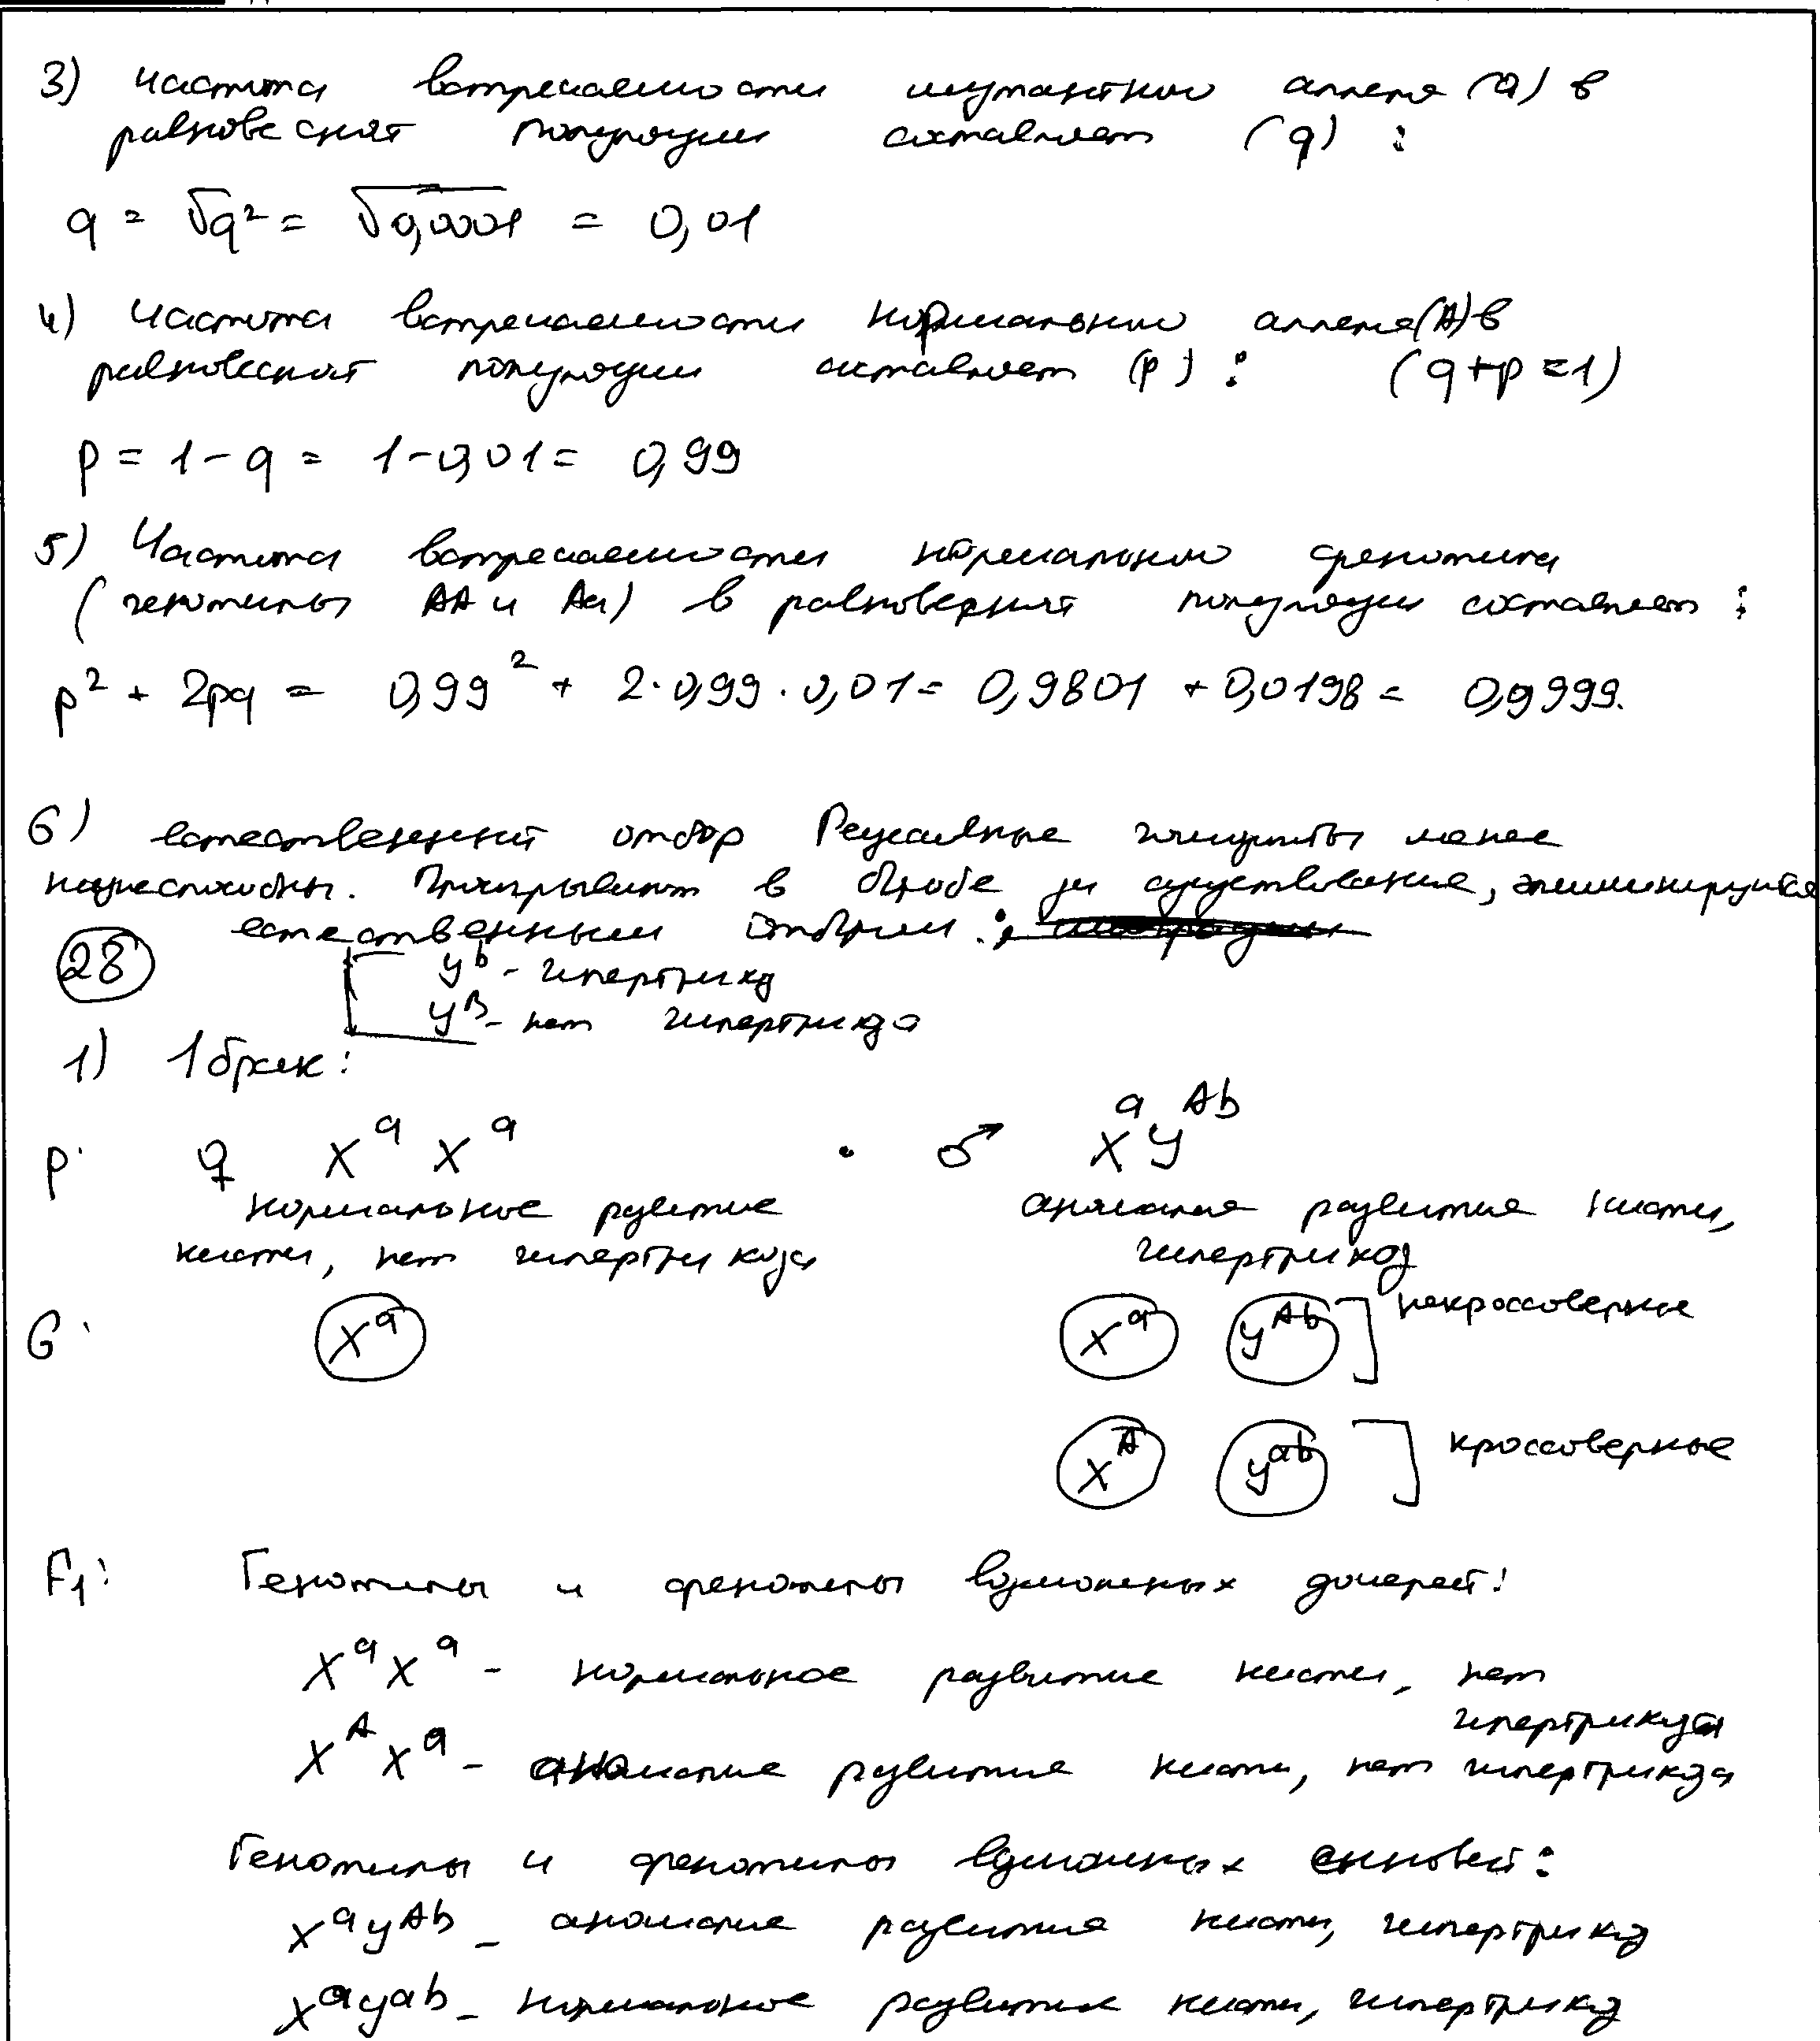 3) частота встречаемости мутантного аллеля (a) в
равновесной популяции составляет (q) :
q = √q² = √0,0001 = 0,01
4) частота встречаемости нормального аллеля (A) в
равновесной популяции составляет (p) : (q+p=1)
p = 1-q = 1-0,01 = 0,99
5) Частота встречаемости нормального фенотипа
(генотипы AA и Aa) в равновесной популяции составляет :
p² + 2pq = 0,99² + 2·0,99·0,01 = 0,9801 + 0,0198 = 0,9999.
6) естественный отбор Рецессивные гомозиготы менее
жизнеспособны. Проигрывают в борьбе за существование, элиминируются
естественным отбором.
28
y^b - гипертрихоз
y^B - нет гипертрихоза
1) 1 брак:
P: ♀ X^a X^a · ♂ X^a y^Ab
нормальное развитие аномалия развития кисти,
кисти, нет гипертрихоза гипертрихоз
G: X^a X^a y^Ab ] некроссоверные
X^A y^ab ] кроссоверные
F₁: Генотипы и фенотипы возможных дочерей:
X^a X^a - нормальное развитие кисти, нет
гипертрихоза
X^A X^a - аномалия развития кисти, нет гипертрихоза
Генотипы и фенотипы возможных сыновей:
X^a y^Ab - аномалия развития кисти, гипертрихоз
X^a y^ab - нормальное развитие кисти, гипертрихоз